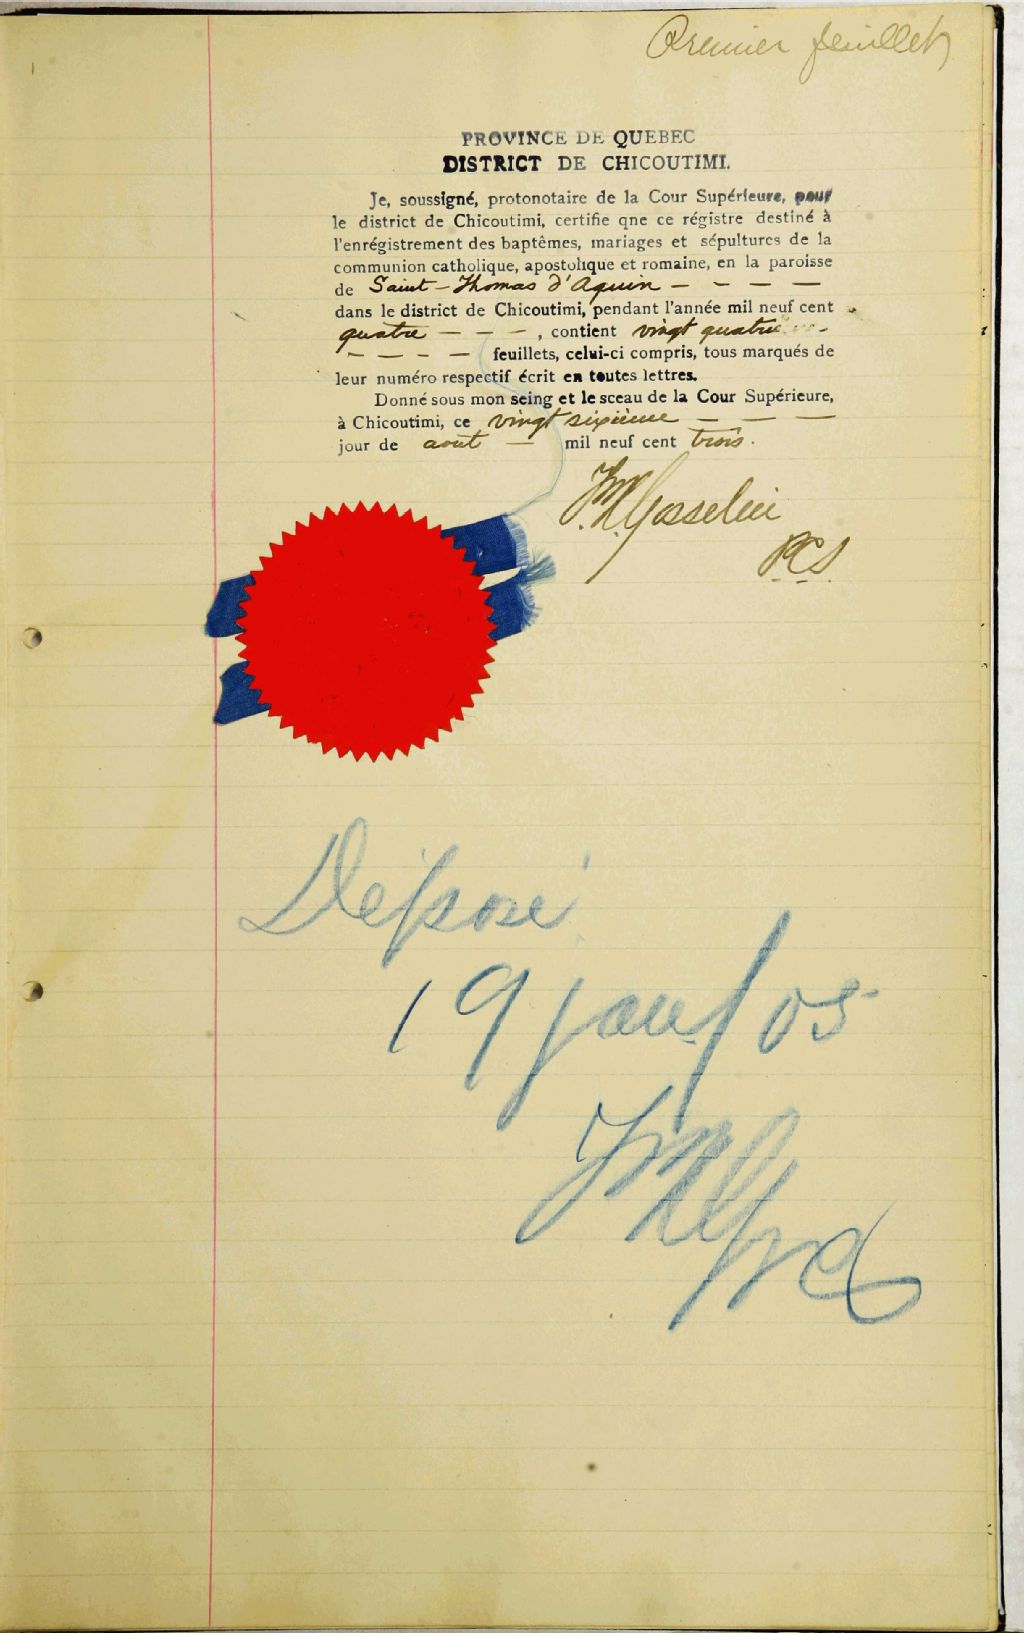 Premier feuillet
PROVINCE DE QUEBEC
DISTRICT DE CHICOUTIMI.
Je, soussigné, protonotaire de la Cour Supérieure, pour
le district de Chicoutimi, certifie qne ce régistre destiné à
l'enrégistrement des baptêmes, mariages et sépultures de la
communion catholique, apostolique et romaine, en la paroisse
de Saint-Thomas d'Aquin — — — —
dans le district de Chicoutimi, pendant l'année mil neuf cent
quatre — — — , contient vingt quatre
— — — — feuillets, celui-ci compris, tous marqués de
leur numéro respectif écrit en toutes lettres.
Donné sous mon seing et le sceau de la Cour Supérieure,
à Chicoutimi, ce vingt sixième — — —
jour de août — mil neuf cent trois.
Gosselin
PCS
Déposé
19 janv 05